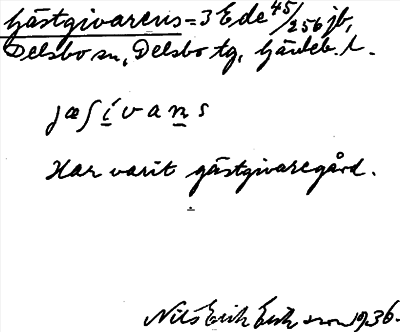 Gästgivarens = 3 E de 45/256 jb,
Delsbo sn, Delsbo tg, Gävleb. l.
jæſi̲van̲s
Har varit gästgivaregård.
Nils Erik Eriksson 1936.